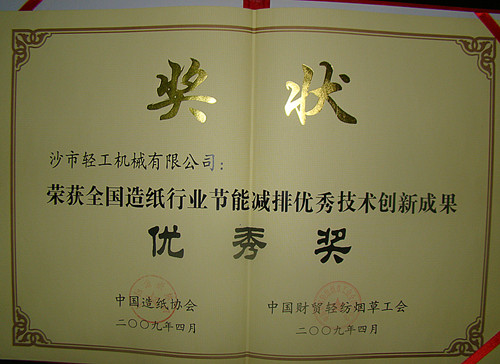 奖状
沙市轻工机械有限公司：
荣获全国造纸行业节能减排优秀技术创新成果
优秀奖
中国造纸协会
二〇〇九年四月
中国财贸轻纺烟草工会
二〇〇九年四月